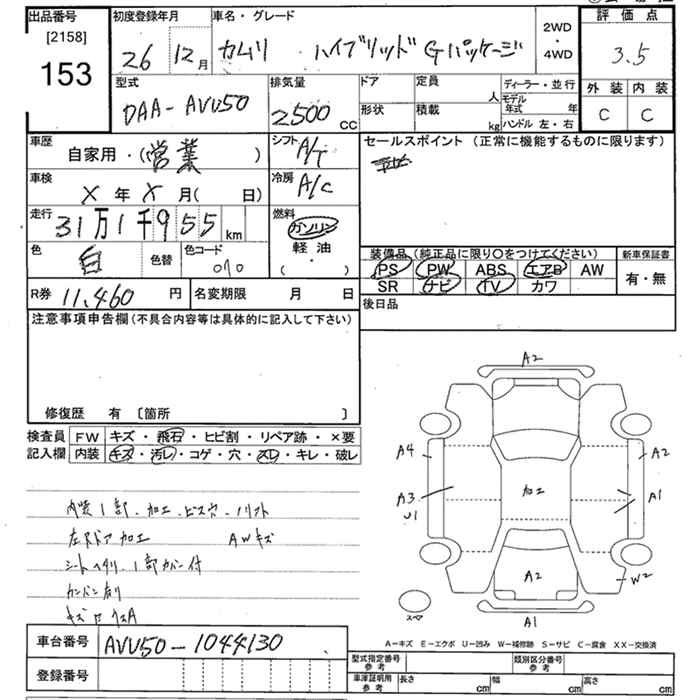 出品番号 初度登録年月 車名・グレード 2WD・4WD 評価点
[2158]
153 26 12月 カムリ ハイブリッド Gパッケージ 3.5
型式 排気量 ドア 定員 人 ディーラー・並行 外装 内装
DAA-AVU50 2500 CC 形状 積載 kg モデル年式 年 C C
ハンドル 左・右
車歴 自家用・(営業) シフト A/T セールスポイント (正常に機能するものに限ります)
車検 X年X月(日) 冷房 A/C
走行 31万1千955 km 燃料 ガソリン
軽油
・
( )
色 白 色替 色コード 070
装備品 (純正品に限り〇をつけてください) 新車保証書
PS PW ABS エアB AW 有・無
SR ナビ TV カワ
R券 11,460 円 名変期限 月 日 後日品
注意事項申告欄 (不具合内容等は具体的に記入して下さい)
修復歴 有 [箇所 ]
検査員 FW キズ・飛石・ヒビ割・リペア跡・×要
記入欄 内装 キズ・汚レ・コゲ・穴・スレ・キレ・破レ
内装1部 加工 ビス穴 ノリフト
左Rドア加工 AWキズ
1部カバー付
キズ
A2
A4 A2
A3 加工 A1
U1
A2 W2
スペア
A1
A-キズ E-エクボ U-凹み W-補修跡 S-サビ C-腐食 XX-交換済
車台番号 AVU50-1044130
登録番号
型式指定番号 参考 類別区分番号 参考
車庫証明用 参考 長さ cm 幅 cm 高さ cm